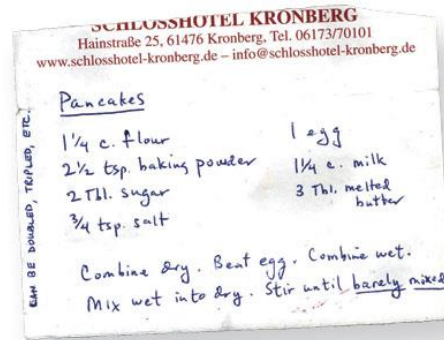 SCHLOSSHOTEL KRONBERG
Hainstraße 25, 61476 Kronberg, Tel. 06173/70101
www.schlosshotel-kronberg.de – info@schlosshotel-kronberg.de
CAN BE DOUBLED, TRIPLED, ETC.
Pancakes
1 1/4 c. flour
2 1/2 tsp. baking powder
2 Tbl. sugar
3/4 tsp. salt
1 egg
1 1/4 c. milk
3 Tbl. melted
butter
Combine dry. Beat egg. Combine wet.
Mix wet into dry. Stir until barely mixed